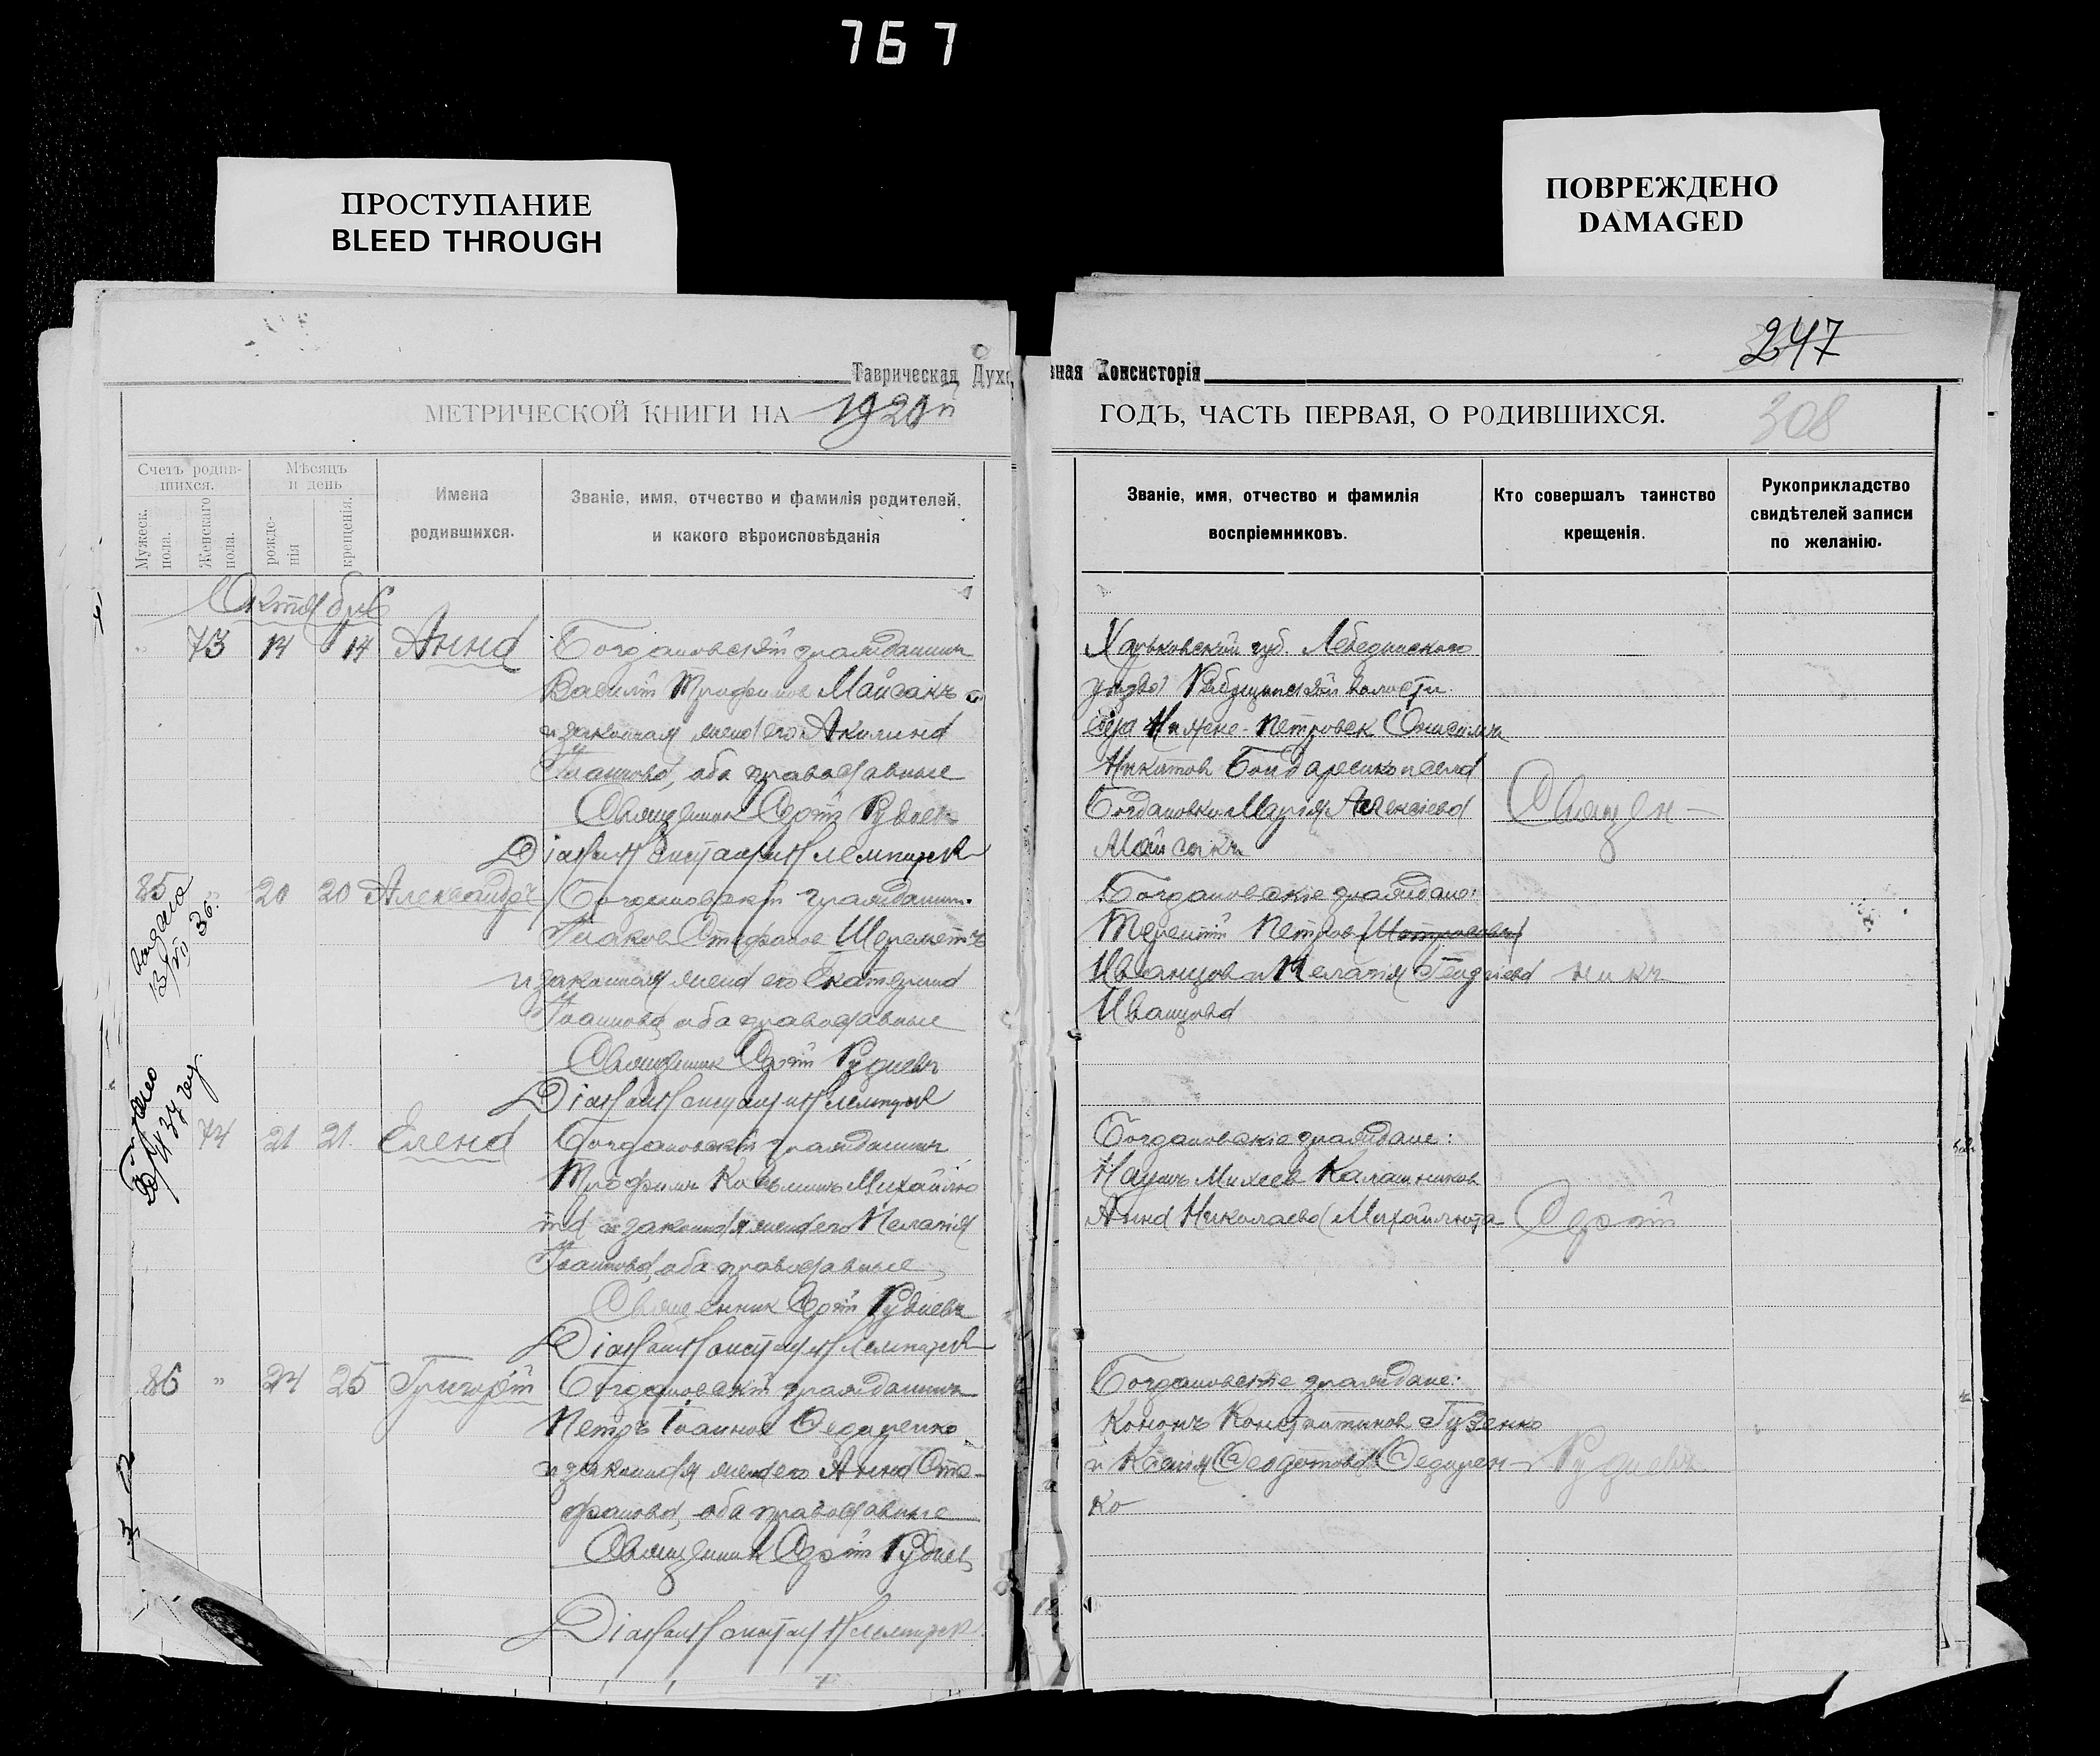 767
ПРОСТУПАНИЕ
BLEED THROUGH
ПОВРЕЖДЕНО
DAMAGED
247
Таврическая Духо
вная Консисторія
МЕТРИЧЕСКОЙ КНИГИ НА 1920й
ГОДЪ, ЧАСТЬ ПЕРВАЯ, О РОДИВШИХСЯ.
308
Счетъ родив-
шихся.
Мужеск.
пола.
Женскаго
пола.
Мѣсяцъ
и день
рожде-
нія
крещенія.
Имена
родившихся.
Званіе, имя, отчество и фамилія родителей,
и какого вѣроисповѣданія
Званіе, имя, отчество и фамилія
воспріемниковъ.
Кто совершалъ таинство
крещенія.
Рукоприкладство
свидѣтелей записи
по желанію.
Октябрь
73 14 14 Анна
Богдановскій гражданинъ
Василій Трофимов Майсакъ
и законная жена его Акилина
Іоаннова, оба православные
Священник Сергій Руднев
Діакон Константин
Харьковской губ. Лебединского
уѣзда волости
села Нижне-Петровск Онисимъ
Никитов Бондаренко и села
Богдановки Марія Алексіева
Майсакъ
Священ-
85 " 20 20 Александръ
выдано
13/VII 36.
Богдановскій гражданин.
Іаков Стефанов Шереметъ
и законная жена его Екатерина
Іоаннова, оба православные
Священник Сергій Рудневъ
Діакон Константин
Богдановскіе граждане:
Терентій Петров
Иванцов и Пелагія Георгіева
Иванцова
никъ
74 21 21. Елена
Богдановскій гражданинъ
Трофимъ Козьминъ Михайлю
та и законная жена его Пелагія
Іоаннова, оба православные
Священник Сергій Рудневъ
Діакон Константин
Богдановскіе граждане:
Наумъ Михеев Калашников
Анна Николаева Михайлюта
Сергій
86 " 24 25 Григорій
Богдановскій гражданинъ
Петръ Іоаннов Федоренко
и законная жена его Анна Сте-
фанова, оба православные
Священник Сергій Руднев
Діакон Константин
Богдановскіе граждане:
Кононъ Константинов Гузенко
и Ксенія Феодотова Федорен-
ко
Рудневъ